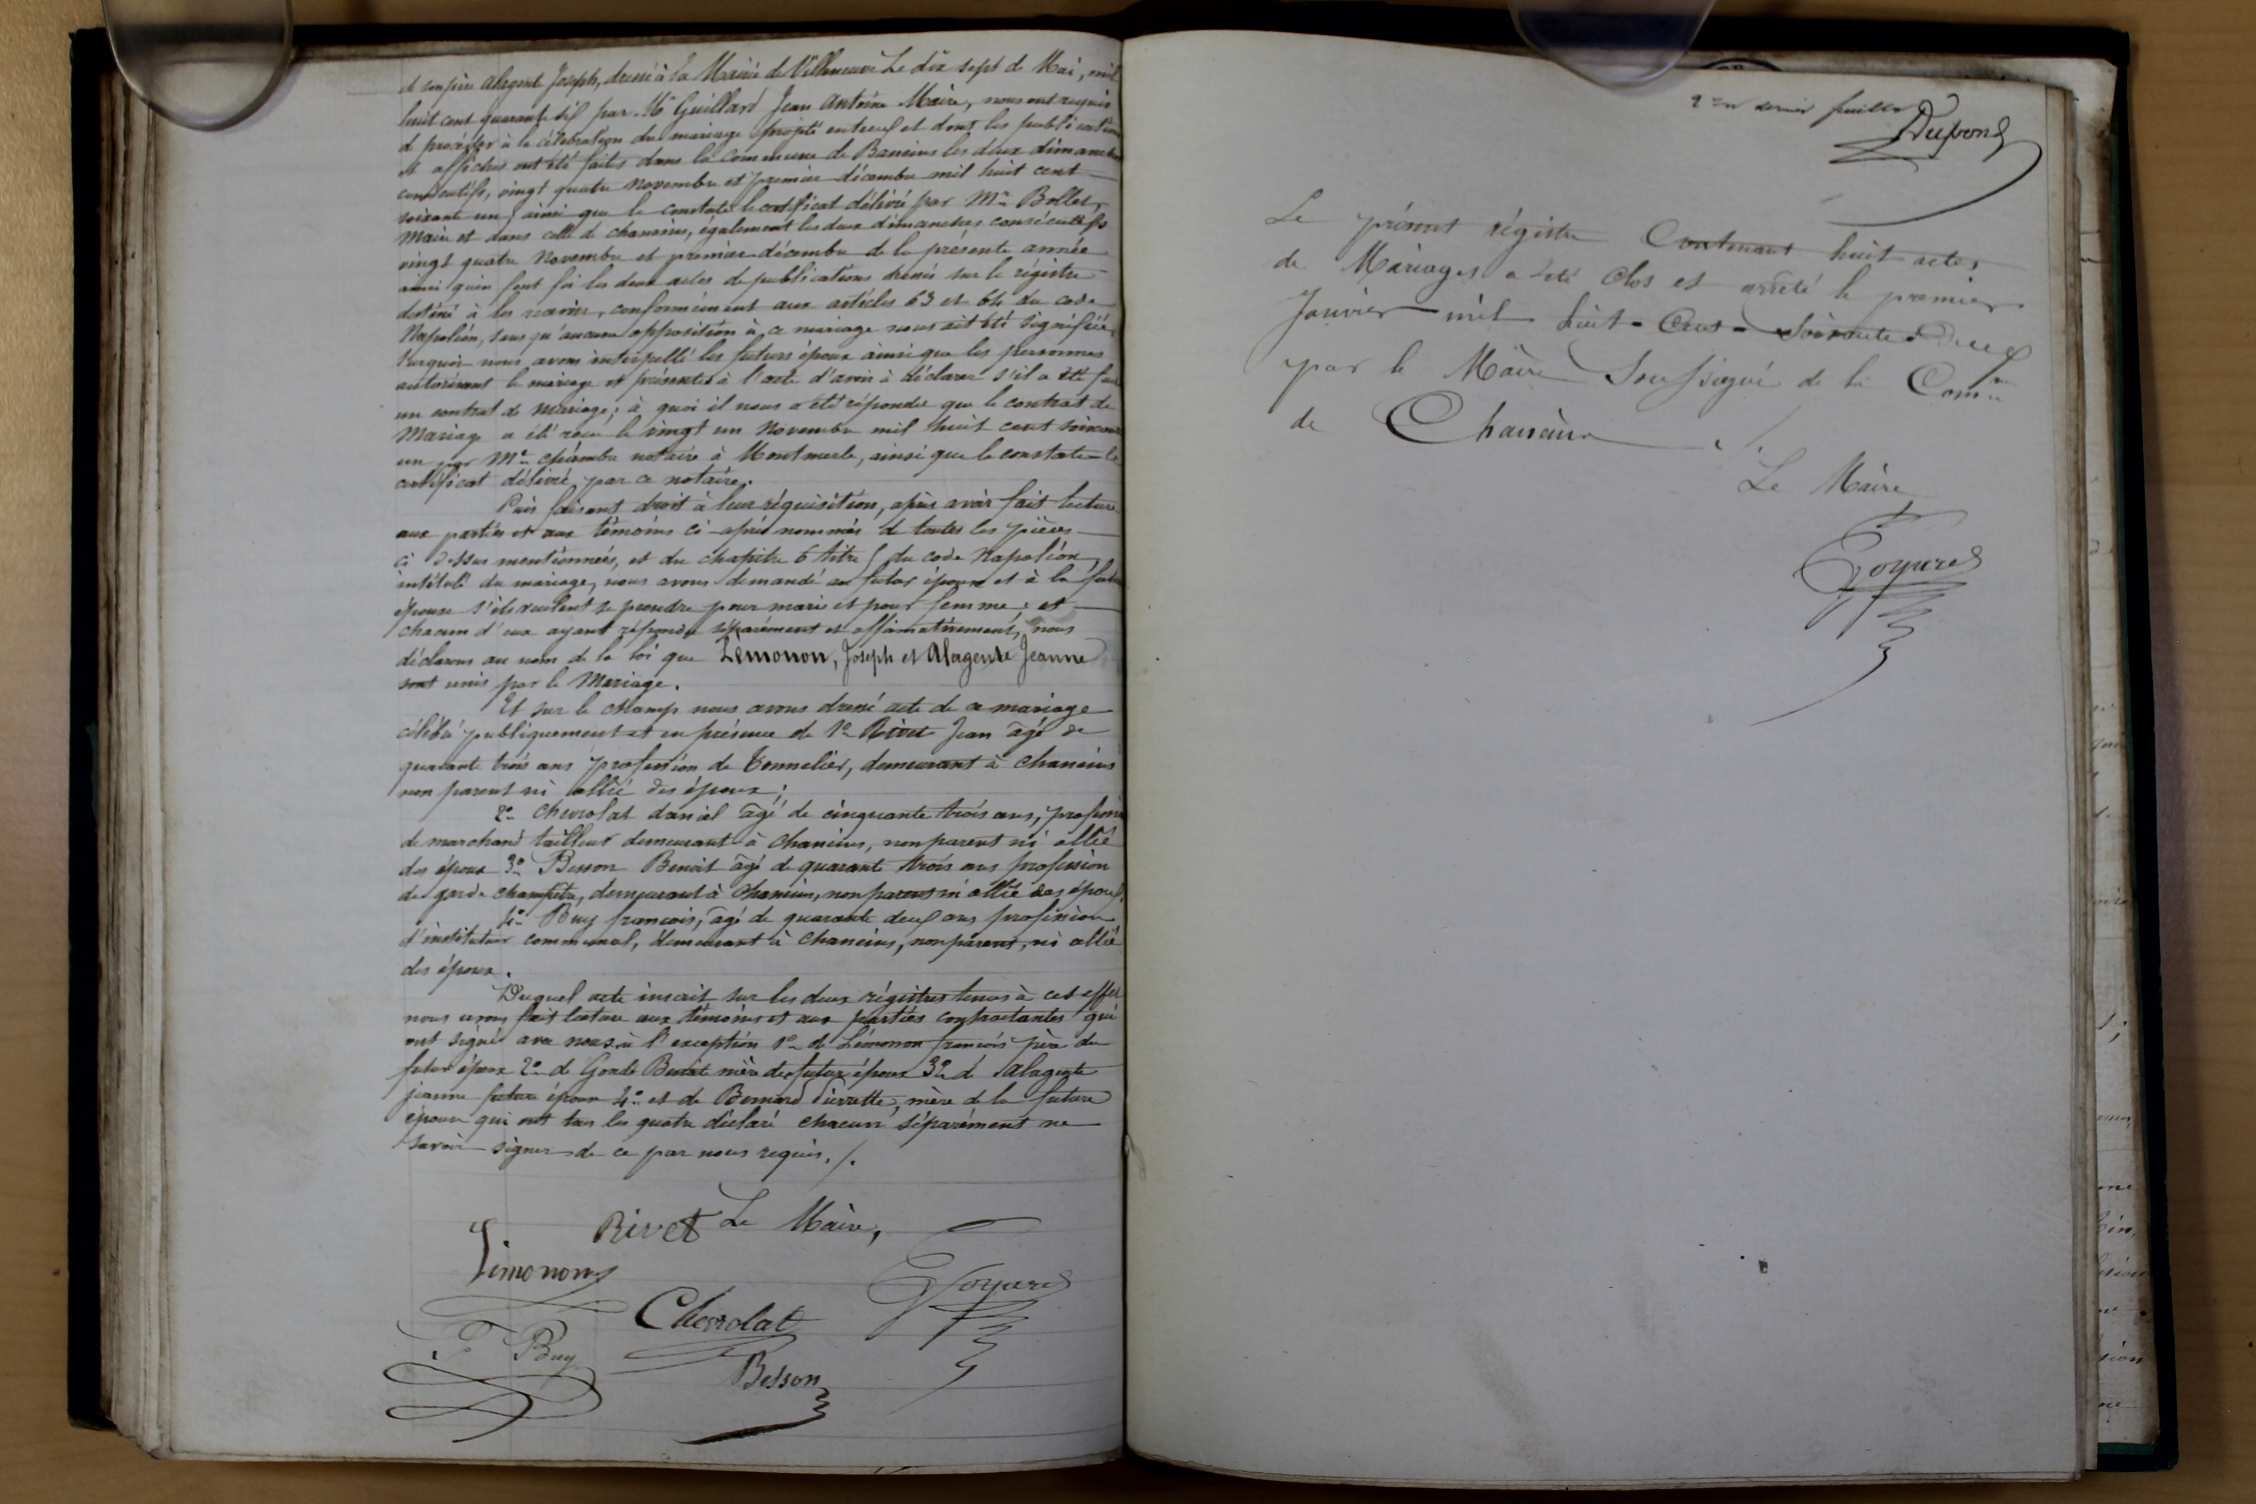 et son père Alagente Joseph, dressé à la Mairie de Villeneuve le dix sept de Mai, mil
huit cent quarante six par Mr Guillard Jean Antoine Maire, nous ont requis
de procéder à la célébration du mariage projeté entr'eux et dont les publications
et affiches ont été faites dans la commune de Baneins les deux dimanches
consécutifs, vingt quatre Novembre et premier décembre mil huit cent
soixante un, ainsi que le constate le certificat délivré par Mr Bollet,
Maire et dans celle de chaneins, également les deux dimanches consécutifs
vingt quatre Novembre et premier décembre de la présente année
ainsi qu'en font foi les deux actes de publications dressés sur le régistre
destiné à les recevoir, conformément aux articles 63 et 64 du code
Napoléon, sans qu'aucune opposition à ce mariage nous ait été signifiée,
Surquoi nous avons interpellé les futurs époux ainsi que les personnes
autorisant le mariage et présentes à l'acte d'avoir à déclarer s'il a été fait
un contrat de mariage; à quoi il nous a été répondu que le contrat de
Mariage a été reçu le vingt un Novembre mil huit cent soixante
un par Me chambre notaire à Montmerle, ainsi que le constate le
certificat délivré par ce notaire.
Puis faisant droit à leur réquisition, après avoir fait lecture
aux parties et aux témoins ci-après nommés de toutes les pièces
ci dessus mentionnées, et du chapitre 6 titre 5 du code Napoléon,
intitulé du mariage, nous avons demandé au futur époux et à la future
épouse s'ils veulent se prendre pour mari et pour femme; et
chacun d'eux ayant répondu séparément et affirmativement, nous
déclarons au nom de la loi que Limonon, Joseph et Alagente Jeanne
sont unis par le Mariage.
Et sur le champ nous avons dressé acte de ce mariage
célébré publiquement et en présence de 1° Rivet Jean âgé de
quarante trois ans profession de Tonnelier, demeurant à Chaneins
non parent ni allié des époux;
2° Chevrolat daniel âgé de cinquante trois ans, profession
de marchand tailleur demeurant à chaneins, non parent ni allié
des époux 3° Besson Benoit âgé de quarante trois ans profession
de garde champêtre, demeurant à Chaneins, non parent ni allié des époux,
4° Buy françois, âgé de quarante deux ans profession
d'instituteur communal, demeurant à chaneins, non parent, ni allié
des époux.
Duquel acte inscrit sur les deux régistres tenus à cet effet
nous avons fait lecture aux témoins et aux parties contractantes qui
ont signé avec nous, à l'exception 1° de Limonon françois père du
futur époux 2° de Benoite mère du futur époux 3° de Alagente
jeanne future épouse 4° et de Bernard Pierrette, mère de la future
épouse qui ont tous les quatre déclaré chacun séparément ne
savoir signer de ce par nous requis. /.
Rivet Le Maire,
Limonon
Goyard
Chevrolat
F Buy
Besson
2me et dernier feuillet
Dupond
Le présent régistre Contenant huit actes
de Mariages a été Clos et arrêté le premier
Janvier mil huit-Cent-Soixante Deux
par le Maire Soussigné de la Comne
de Chaneins ./.
Le Maire
Goyard